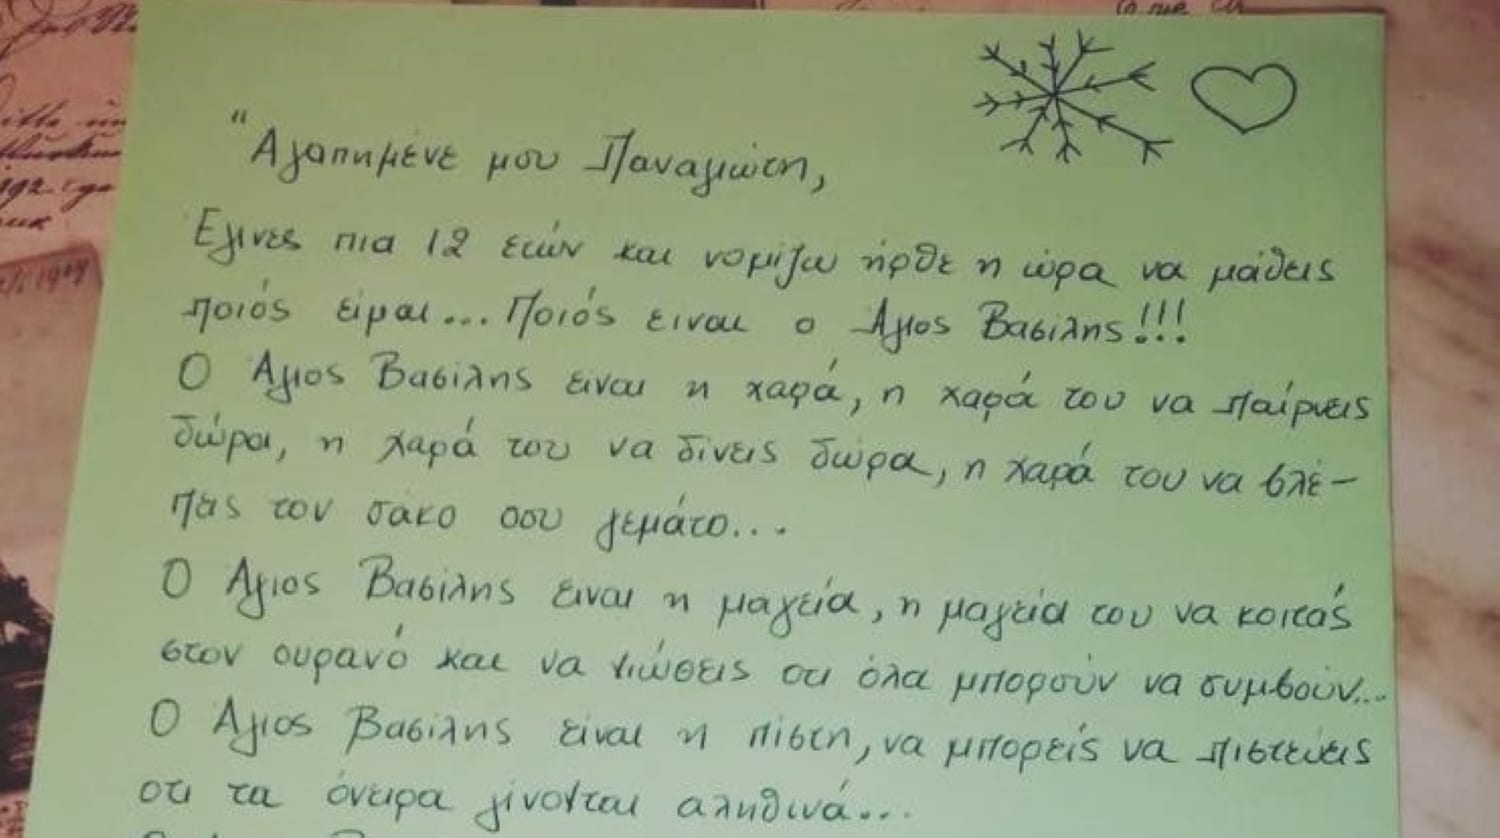 "Αγαπημένε μου Παναγιώτη,
Εγινες πια 12 ετών και νομίζω ήρθε η ώρα να μάθεις
ποιός είμαι... Ποιός ειναι ο Άγιος Βασίλης!!!
Ο Άγιος Βασίλης ειναι η χαρά, η χαρά του να παίρνεις
δώρα, η χαρά του να δίνεις δώρα, η χαρά του να βλέ-
πεις τον σάκο σου γεμάτο...
Ο Άγιος Βασίλης ειναι η μαγεία, η μαγεία του να κοιτάς
στον ουρανό και να νιώθεις οτι όλα μπορούν να συμβούν...
Ο Άγιος Βασίλης είναι η πίστη, να μπορείς να πιστεύεις
οτι τα όνειρα γίνονται αληθινά...
1929